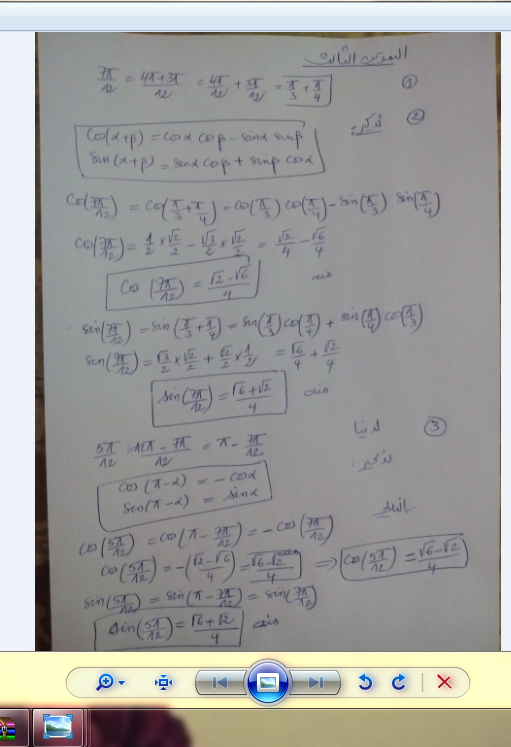 التمرين الثالث
① 7π/12 = 4π+3π/12 = 4π/12 + 3π/12 = π/3 + π/4
② تذكير:
Cos(α+β) = Cosα Cosβ - Sinα Sinβ
Sin(α+β) = Sinα Cosβ + Sinβ Cosα
Cos(7π/12) = Cos(π/3 + π/4) = Cos(π/3) Cos(π/4) - Sin(π/3) Sin(π/4)
Cos(7π/12) = 1/2 × √2/2 - √3/2 × √2/2 = √2/4 - √6/4
Cos(7π/12) = √2-√6/4 منه
Sin(7π/12) = Sin(π/3 + π/4) = Sin(π/3) Cos(π/4) + Sin(π/4) Cos(π/3)
Sin(7π/12) = √3/2 × √2/2 + √2/2 × 1/2 = √6/4 + √2/4
Sin(7π/12) = √6+√2/4 منه
③ لدينا
5π/12 = 12π-7π/12 = π - 7π/12
تذكير:
Cos(π-α) = -Cosα
Sin(π-α) = Sinα
Cos(5π/12) = Cos(π - 7π/12) = -Cos(7π/12)
Cos(5π/12) = -(√2-√6/4) = √6-√2/4 ⇒ Cos(5π/12) = √6-√2/4
Sin(5π/12) = Sin(π - 7π/12) = Sin(7π/12)
Sin(5π/12) = √6+√2/4 منه